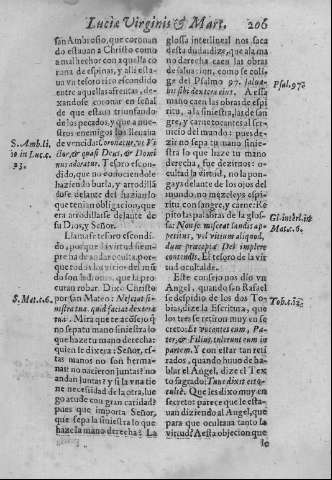 Luciæ Virginis & Mart. 206
san Ambrosio, que coronan
do estauan a Christo como
a mal hechor con aquella co
rana de espinas, y alli esta-
ua vn tesoro rico escondido
entre aquellas afrentas, de-
xandose coronar en señal
de que estaua triunfando
de los pecados, y que a nues-
tros enemigos los lleuaua
de vencida: Coronatur, vt Vi
ctor, & quasi Deus, & Domi
nus adoratur. Tesoro escon-
dido, que no conociendole
haziendo burla, y arrodillã
dose delante del haziã lo
que tenian obligacion, que
era arrodillarse delante de
su Dios, y Señor.
Llamase tesoro escondi
do, porque la virtud siem-
pre ha de andar oculta, por-
que es toda de oro, y en vié
do son ladrones, que la pro-
curan robar. Dixo Christo
por san Mateo: Nesciat si-
nistra tua, quid faciat dextera
tua. Mira que te acõsejo, q̃
no sepa tu mano siniestra lo
que haze tu mano derecha:
quien se dixera: Señor, es-
tas manos no son herma-
nas? no nacieron juntas? no
andan juntas? y si la vna tie
ne necesidad de la otra, lue
go acude con gran caridad?
pues que importa Señor,
que sepa la siniestra lo que
haze la mano derecha? La
S. Amb. li.
10 in Luc. c.
23.
S. Mat. c. 6.
glossa interlineal nos saca
desta duda: dize, que a la ma
no derecha caen las obras
de saluacion, como se coli-
ge del Psalmo 97. saluа-
uit sibi dextera eius. A essa
mano caen las obras de espi
ritu, a la siniestra, las de san
gre, y carne tocantes al ser-
uicio del mundo: pues de-
zir no sepa tu mano sinies-
tra lo que haze tu mano
derecha, fue dezirnos: o-
cultad la virtud, no la pon-
gays delante de los ojos del
mundo, no mezcleys espiri-
tu con sangre, y carne: Re-
pito las palabras de la glo-
sa: Non se misceat laudis ap-
petitus, vel vitium aliquod,
dum præcepta Dei implere
contendis. El tesoro de la vir
tud ocultalde.
Este consejo nos dio vn
Angel, quando san Rafael
se despidio de los dos To-
bias, dize la Escritura, que
los tres se retiron muy en se
creto: Et vocentes eum, Pa-
ter, & Filius, tulerunt eum in
partem. Y con estar tan reti
rados, quando huuo de ha-
blar el Angel, dize el Tex
to sagrado: Tunc dixit eis oc-
culté. Que les dixo muy en
secretos parece que le esta-
uan diziendo al Angel, que
para que ocultaua tanto la
virtud? A esta objecion que
le
Psal. 97.
Gl. interl. in
Mat. c. 6.
Tob. c. 12.